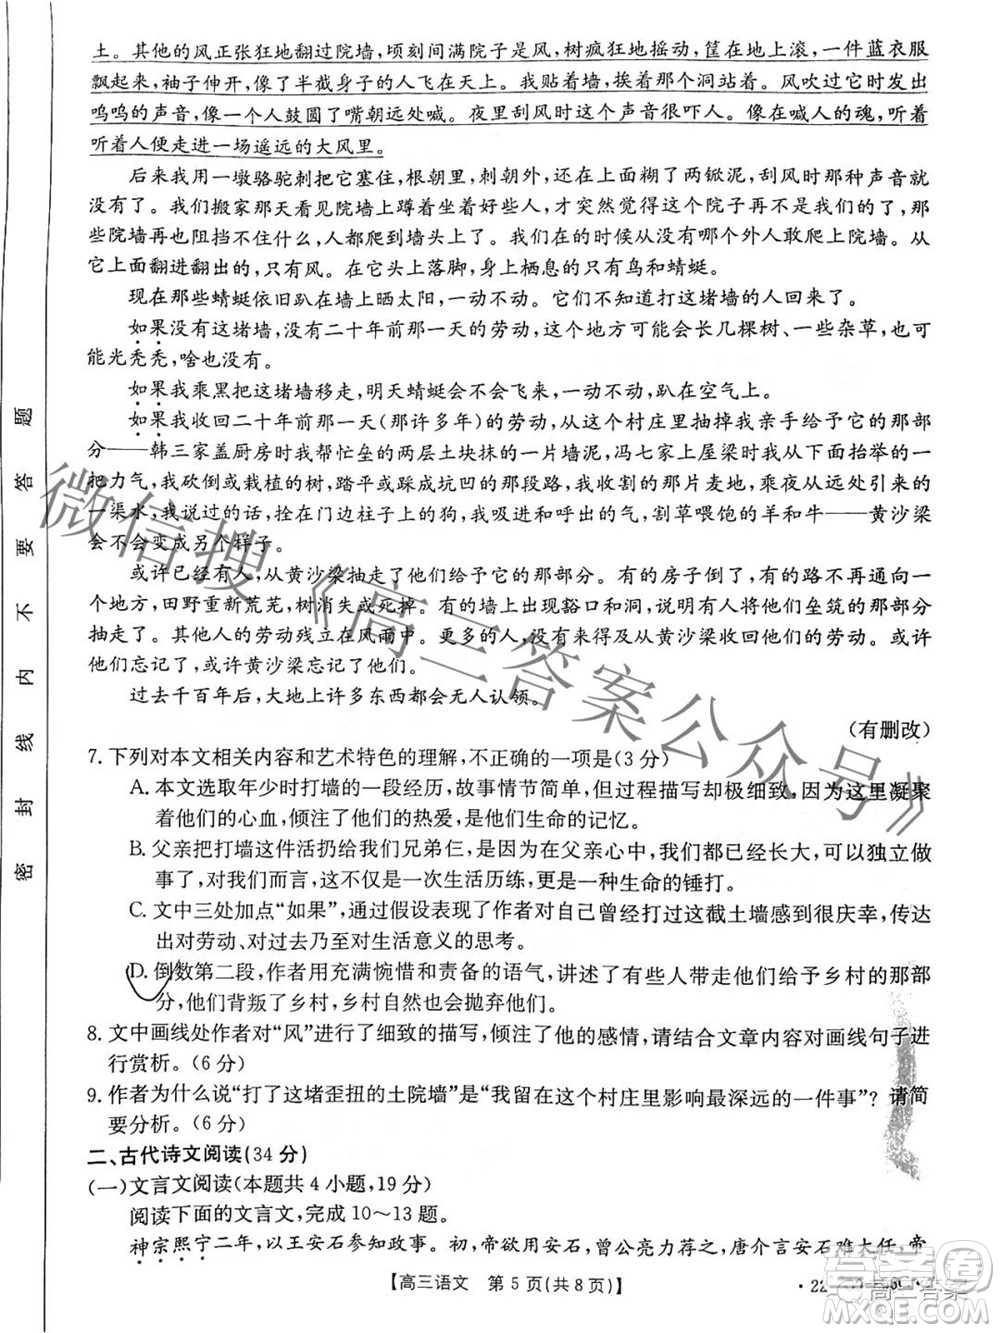 土。其他的风正张狂地翻过院墙,顷刻间满院子是风,树疯狂地摇动,筐在地上滚,一件蓝衣服
飘起来,袖子伸开,像了半截身子的人飞在天上。我贴着墙,挨着那个洞站着。风吹过它时发出
呜呜的声音,像一个人鼓圆了嘴朝远处喊。夜里刮风时这个声音很吓人。像在喊人的魂,听着
听着人便走进一场遥远的大风里。
后来我用一墩骆驼刺把它塞住,根朝里,刺朝外,还在上面糊了两锨泥,刮风时那种声音就
没有了。我们搬家那天看见院墙上蹲着好些人,才突然觉得这个院子再不是我们的了,
那些院墙再也阻挡不住什么,人都爬到墙头上了。我们在的时候从没有哪个外人敢爬上院墙。从
它上面翻进翻出的,只有风。在它头上落脚,身上栖息的只有鸟和蜻蜓。
现在那些蜻蜓依旧趴在墙上晒太阳,一动不动。它不知道打这堵墙的人回来了。
如果没有这堵墙,没有二十年前那一天的劳动,这个地方可能会长几棵树、一些杂草,也可
能光秃秃,一无所有。
如果我乘黑把这堵墙移走,明天蜻蜓会不会还飞来,一动不动,趴在空气上。
如果我收回二十年前那一天(那许多年)的劳动,从这个村庄里抽掉我亲手给予它的那部
分——韩三家盖厨房时我帮忙垒的两层土块抹的一片墙泥,冯七家上屋梁时我从下面抬的一
把力气,我砍倒或栽植的树,踏平或踩成坑凹的那段路,我收割的那片麦地,乘夜从远处引来的
一渠水,我说过的话,拴在门边柱子上的狗,我吸进和呼出的气,割草喂饱的羊和牛——黄沙梁
会不会变成另一个样子。
或许已经有人,从黄沙梁抽走了他们给予它的那部分。有的房子倒了,有的路不再通向一
个地方,田野重新荒芜,树消失或死掉。有的墙上出现豁口和洞,说明有人将他们垒筑的那部分
抽走了。其他人的劳动残立在风雨中。更多的人,没有来得及从黄沙梁收回他们的劳动。或许
他们忘记了,或许黄沙梁忘记了他们。
过去千百年后,大地上许多东西都会无人认领。
(有删改)
7. 下列对本文相关内容和艺术特色的理解,不正确的一项是(3分)
A. 本文选取年少时打墙的一段经历,故事情节简单,但过程描写却极细致,因为这里凝聚
着他们的心血,倾注了他们的热爱,是他们生命的记忆。
B. 父亲把打墙的活扔给我们兄弟仨,是因为在父亲心中,我们都已经长大,可以独立做
墙了,对我们而言,这不仅是一次生活历练,更是一种生命的锤打。
C. 文中三处加点“如果”,通过假设表现了作者对自己曾经打过这截土墙感到很庆幸,传达
出对劳动、对过去乃至对生活意义的思考。
D. 倒数第二段,作者用充满惋惜和责备的语气,讲述了有些人带走他们给予乡村的那部
分,他们背叛了乡村,乡村必然会抛弃他们。
8. 文中画线处作者对“风”进行了细致的描写,倾注了他的感情,请结合文章内容对画线句子进
行赏析。(6分)
9. 作者为什么说“打了这堵歪扭的土院墙”是“我留在这个村庄里影响最深远的一件事”?请简
要分析。(6分)
二、古代诗文阅读(34分)
(一)文言文阅读(本题共4小题,19分)
阅读下面的文言文,完成10~13题。
神宗熙宁二年,以王安石参知政事。初,帝欲用安石,曾公亮力荐之,唐介言安石难大任,帝
【高三语文 第5页(共8页)】
密封线内不要答题
微信搜《高三答案公众号》
高三答案